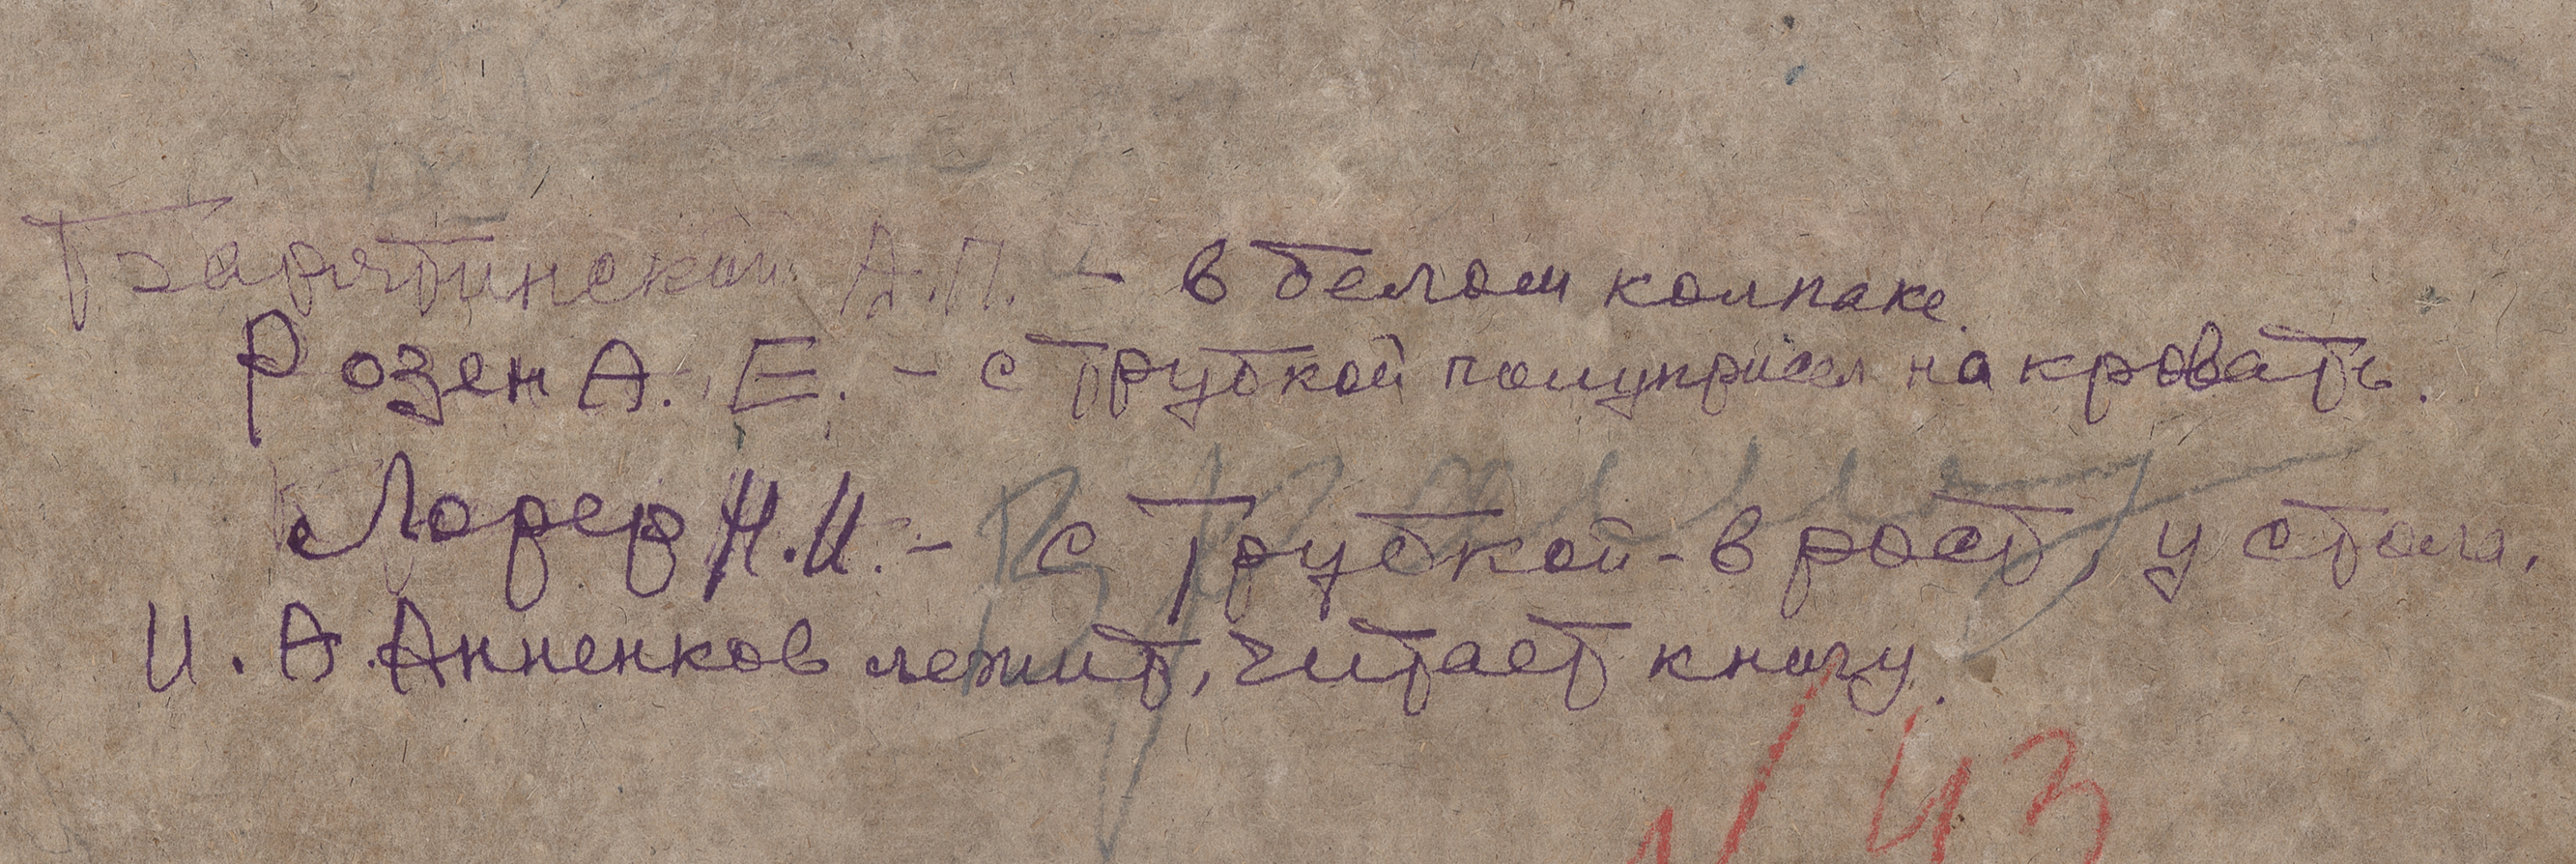 Барятинский А.П. - в белом колпаке.
Розен А. Е. - с трубкой полуприсел на кровать.
Лорер Н.И. - с трубкой - в рост, у стола,
И. А. Анненков лежит, читает книгу.
43